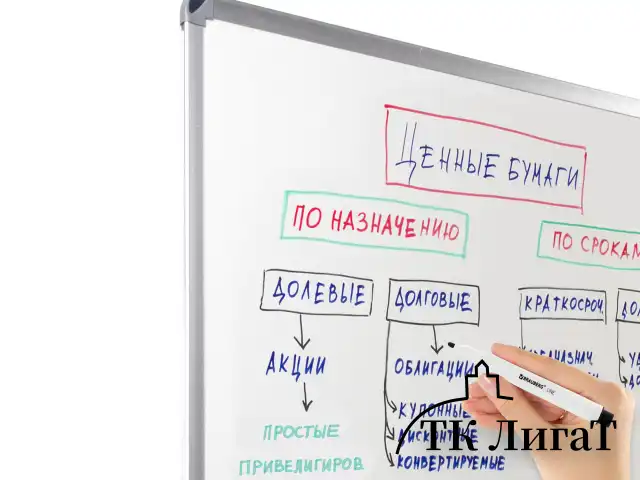 ЦЕННЫЕ БУМАГИ
ПО НАЗНАЧЕНИЮ
ПО СРОКАМ
ДОЛЕВЫЕ
ДОЛГОВЫЕ
КРАТКОСРОЧ.
АКЦИИ
ОБЛИГАЦИИ
ПРОСТЫЕ
ПРИВЕЛИГИРОВ
КУПОННЫЕ
ДИСКОНТНЫЕ
КОНВЕРТИРУЕМЫЕ
BRAUBERG LINE
ТК ЛигаТ